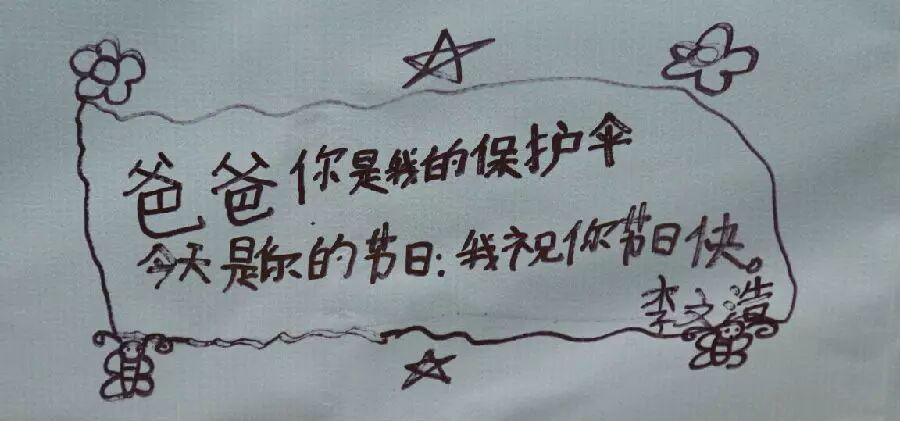 爸爸你是我的保护伞
今天是你的节日:我祝你节日快。
李文浩